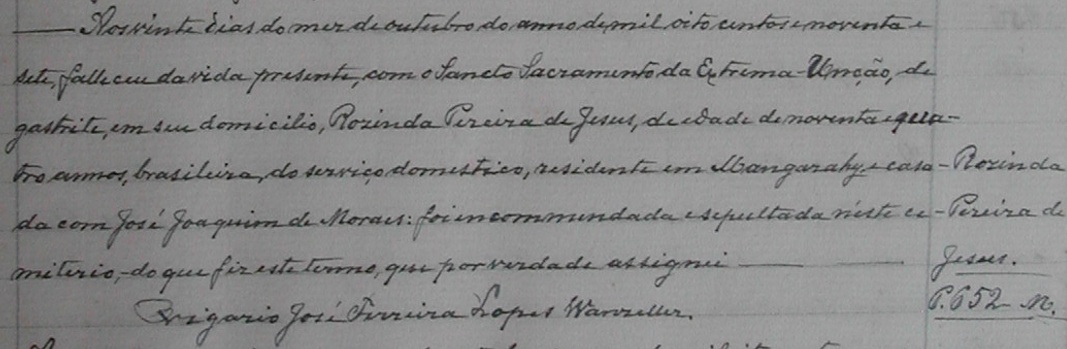 Aos vinte dias do mez de outubro do anno de mil oito centos e noventa e
sete, falleceu da vida presente, com o Sancto Sacramento da Extrema-Uncção, de
gastrite, em seu domicilio, Rozinda Pereira de Jesus, de edade de noventa e qua-
tro annos, brasileira, do serviço domestico, residente em Mangarahy e casa-
da com José Joaquim de Moraes: foi encommendada e sepultada n'éste ce-
miterio, do que fiz este termo, que por verdade assignei
Vigario José Ferreira Lopes Wanzeller.
Rozinda
Pereira de
Jesus.
P. 652 N.